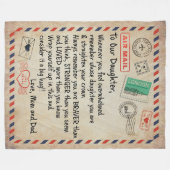 AIR MAIL
To Our Daughter,
Whenever you feel overwhelmed
remember whose daughter you are
& straighten your crown
Always remember you are BRAVER than
you think, STRONGER than you seem
and LOVED more than you know
Wrap yourself up in this and
consider it a big hug!
Love, Mom and Dad